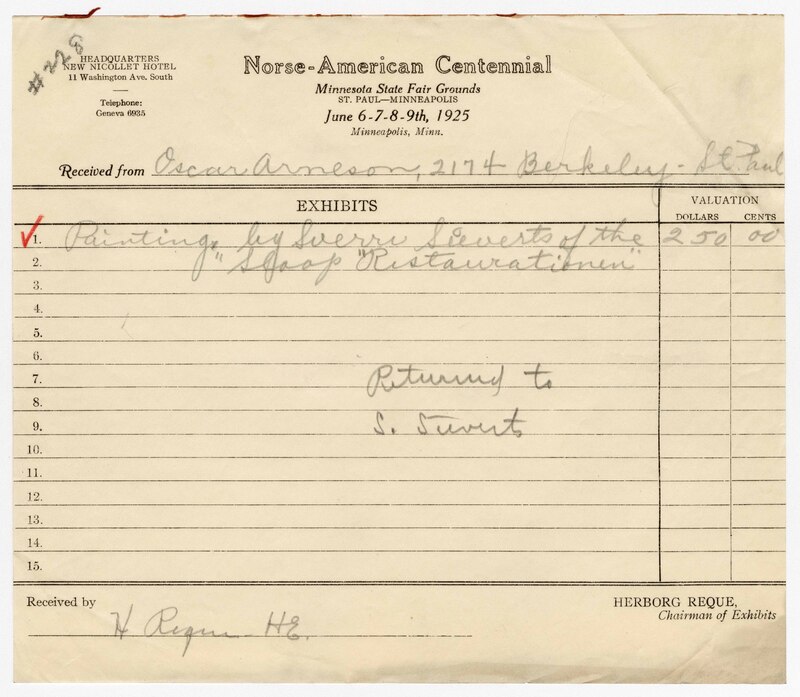 #228
HEADQUARTERS
NEW NICOLLET HOTEL
11 Washington Ave. South
Telephone:
Geneva 6935
Norse-American Centennial
Minnesota State Fair Grounds
ST. PAUL—MINNEAPOLIS
June 6-7-8-9th, 1925
Minneapolis, Minn.
Received from Oscar Arneson, 2174 Berkeley - St. Paul
EXHIBITS
VALUATION
DOLLARS CENTS
1. Painting, by Sverre Sieverts of the 250 00
2. "Sloop "Restaurationen"
3.
4.
5.
6.
7. Returned to
8.
9. S. Sieverts
10.
11.
12.
13.
14.
15.
Received by H Reque HE.
HERBORG REQUE,
Chairman of Exhibits